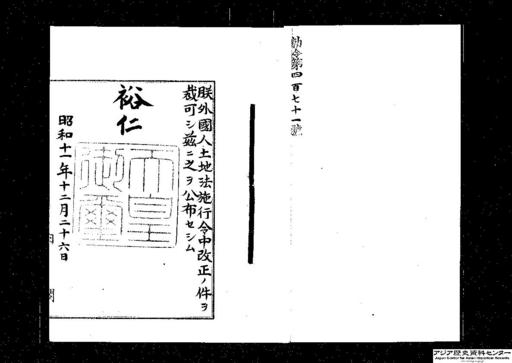 勅令第四百七十一號
朕外國人土地法施行令中改正ノ件ヲ
裁可シ茲ニ之ヲ公布セシム
裕仁
天皇御璽
昭和十一年十二月二十六日
アジア歴史資料センター
Japan Center for Asian Historical Records